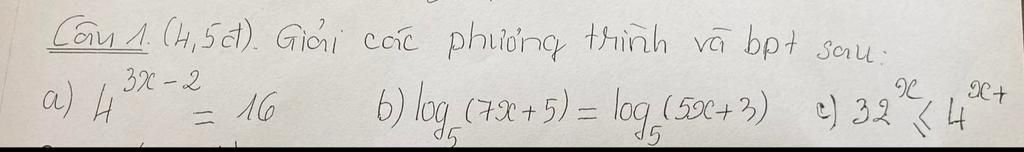 Câu 1. (4,5đ). Giải các phương trình và bpt sau:
a) 4^{3x-2} = 16 b) log_5 (7x+5) = log_5 (5x+3) c) 32^x ≤ 4^{x+